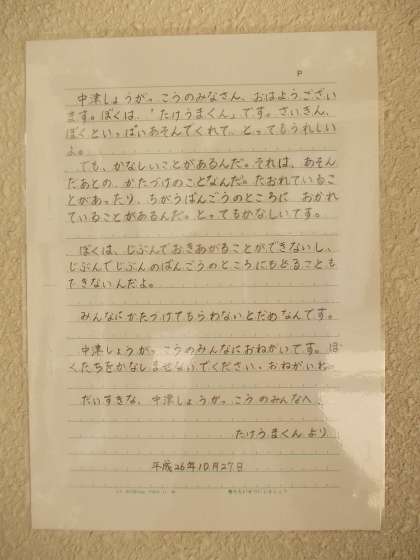 P
中津しょうがっこうのみなさん、おはようござい
ます。ぼくは、「たけうまくん」です。さいきん、
ぼくといっぱいあそんでくれて、とってもうれしい
よ。
でも、かなしいことがあるんだ。それは、あそん
だあとの、かたづけのことなんだ。たおれているこ
とがあったり、ちがうばんごうのところに おかれ
ていることがあるんだ。とってもかなしいです。
ぼくは、じぶんでおきあがることができないし、
じぶんでじぶんのばんごうのところにもどることも
できないんだよ。
みんなにかたづけてもらわないとだめなんです。
中津しょうがっこうのみんなにおねがいです。ぼ
くたちをかなしませないでください。おねがいね。
だいすきな、中津しょうがっこうのみんなへ
たけうまくんより
平成26年10月27日